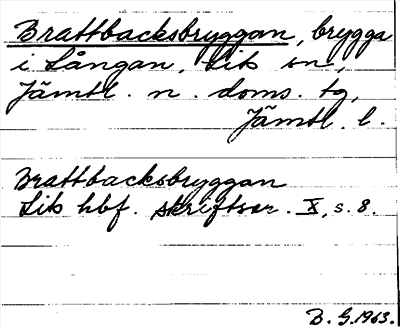 Brattbacksbryggan, brygga
i Långan, Lits sn,
Jämtl. n. doms. tg,
Jämtl. l.
Brattbacksbryggan
Lits hbf. skriftser. X, s. 8.
B. G. 1963.